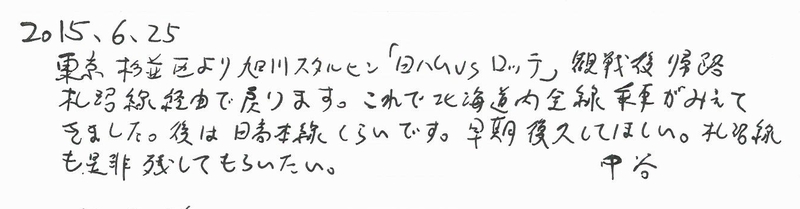 2015、6、25
東京 杉並区より旭川スタルヒン「日ハムvsロッテ」観戦後帰路
札沼線経由で戻ります。これで北海道内全線乗車がみえて
きました。後は日高本線くらいです。早期復久してほしい。札沼線
も是非残してもらいたい。 中谷